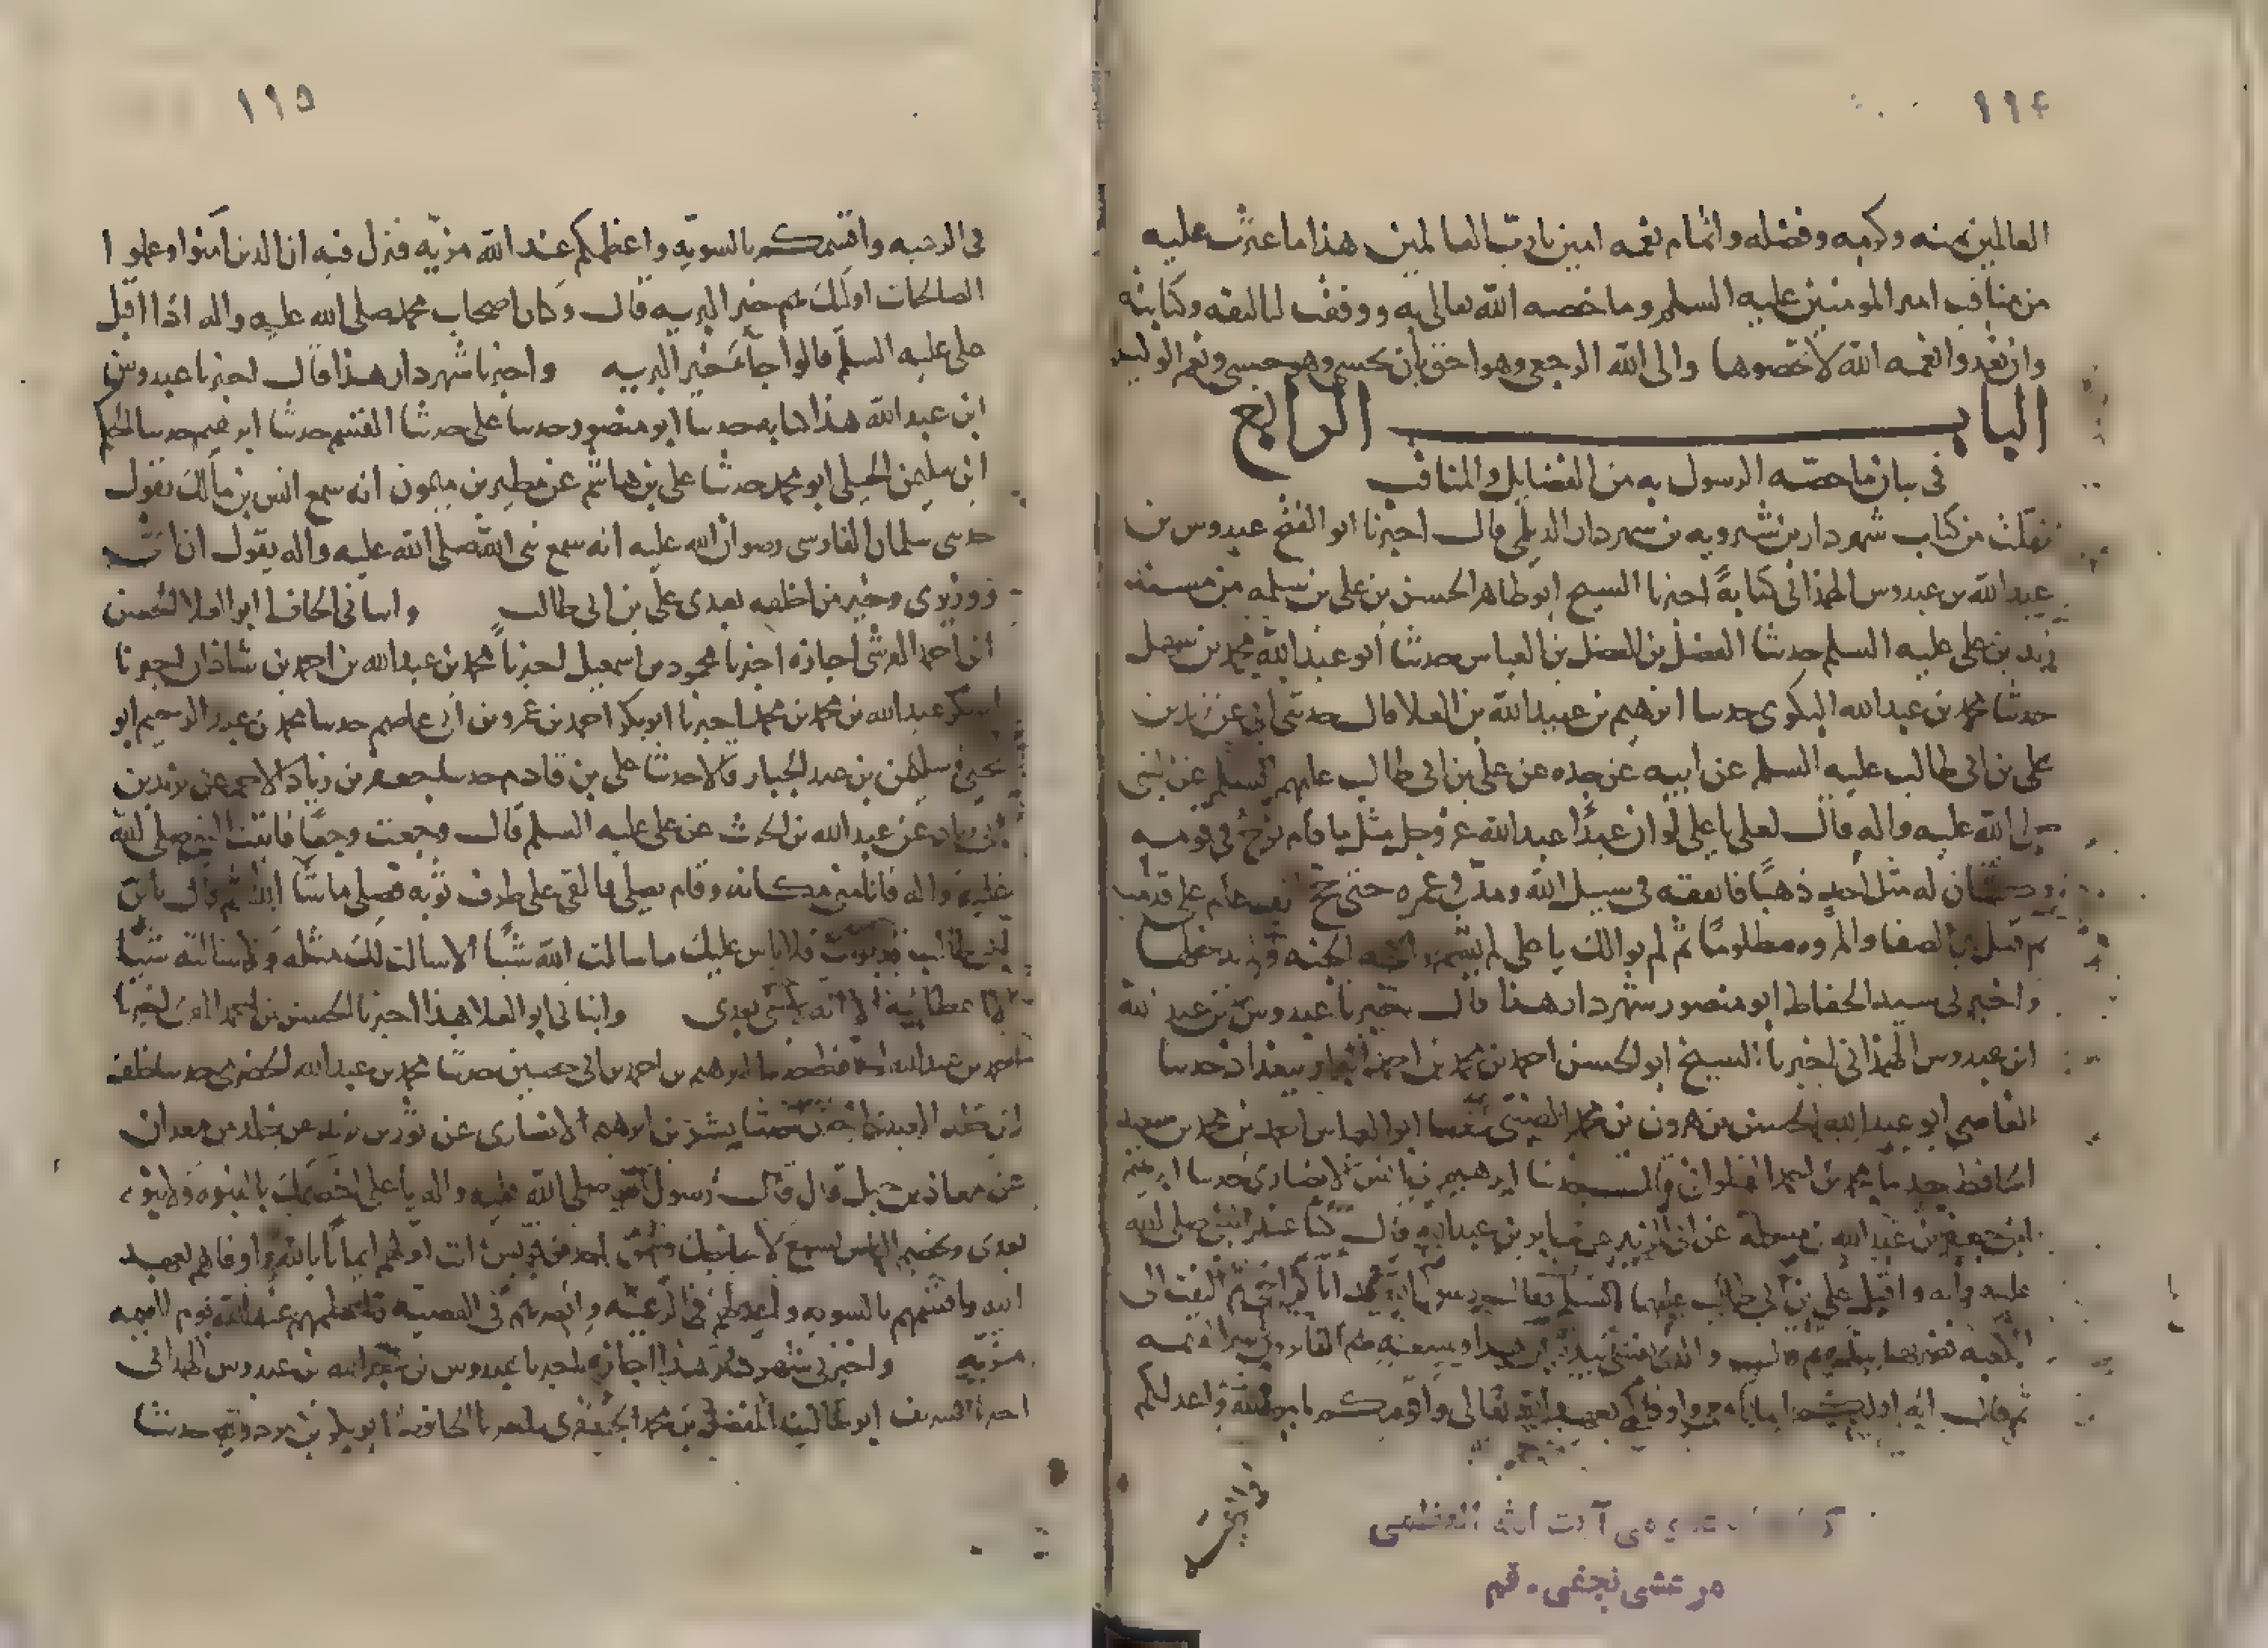 ١١٤
العالمين بمنه وكرمه وفضله واتمام نعمه امين يا رب العالمين هذا ما عثرت عليه
من مناقب امير المومنين عليه السلم وما خصه الله تعالى به ووفقت لتاليفه وكتابته
وان تعدوا نعمه الله لا تحصوها والى الله الرجعى وهو احق بان يخشى وهو حسبى ونعم الوليد
الباب الرابع
فى بيان ما خصه الرسول به من الفضايل والمناقب
نقلت من كتاب شهردار بن شيرويه بن شهردار الديلمى قال اخبرنا ابو الفتح عبدوس بن
عبد الله بن عبدوس الهمذانى كتابةً اخبرنا الشيخ ابو طاهر الحسين بن على بن سلمه من مسند
زيد بن على عليه السلم حدثنا الفضل بن الفضل بن العباس حدثنا ابو عبد الله محمد بن سهل
حدثنا محمد بن عبد الله البكوى حدثنا ابرهيم بن عبيد الله بن العلا قال حدثنى ابى عن زيد بن
على بن ابى طالب عليه السلم عن ابيه عن جده عن على بن ابى طالب عليهم السلم عن النبى
صلى الله عليه واله قال لعلى يا على لو ان عبدًا عبد الله عز وجل مثل ما قام نوح فى قومه
وكان له مثل احد ذهبًا فانفقه فى سبيل الله ومد فى عمره حتى حج الف عام على قدميه
ثم قتل بين الصفا والمروه مظلومًا ثم لم يوالك يا على لم يشم رايحه الجنه ولم يدخلها
واخبرنى سيد الحفاظ ابو منصور شهردار هذا قال اخبرنا عبدوس بن عبد الله
ابن عبدوس الهمذانى اخبرنا الشيخ ابو الحسن احمد بن محمد بن احمد البزاز ببغداد حدثنا
القاضى ابو عبد الله الحسين بن هرون بن محمد الضبى حدثنا ابو العباس احمد بن محمد بن سعيد
الحافظ حدثنا محمد بن احمد القطوانى قال حدثنا ابرهيم بن انس الانصارى حدثنا ابرهيم
ابن جعفر بن عبد الله بن مسلمة عن ابى الزبير عن جابر بن عبد الله قال كنا عند النبى صلى الله
عليه واله واقبل على بن ابى طالب عليهما السلم فقال رسول الله قد اتاكم اخى ثم التفت الى
الكعبه فضربها بيده ثم قال والذى نفسى بيده ان هذا وشيعته هم الفايزون يوم القيمه
ثم قال انه اولكم ايمانًا معى واوفاكم بعهد الله تعالى واقومكم بامر الله واعدلكم
فى الرعيه
مرعشى نجفى - قم
١١٥
فى الرعيه واقسمكم بالسويه واعظمكم عند الله مزيه فنزل فيه ان الذين امنوا وعملوا ا
الصالحات اولئك هم خير البريه قال وكان اصحاب محمد صلى الله عليه واله اذا اقبل
على عليه السلم قالوا جاء خير البريه واخبرنا شهردار هذا قال اخبرنا عبدوس
ابن عبد الله هذا كتابه حدثنا ابو منصور حدثنا على حدثنا القسم حدثنا ابرهيم حدثنا الحكم
ابن سليمن الجبلى ابو محمد حدثنا على بن هاشم عن مطير بن ميمون انه سمع انس بن مالك يقول
حدثنى سلمان الفارسى رضوان الله عليه انه سمع نبى الله صلى الله عليه واله يقول ان اخى
ووزيرى وخير من اخلفه بعدى على بن ابى طالب وانبانى الحافظ ابو العلا الحسن
ابن احمد العرشى اجازه اخبرنا محمود بن اسمعيل اخبرنا محمد بن عبد الله بن احمد بن شاذان اخبرنا
ابو بكر عبد الله بن محمد بن محمد اخبرنا ابو بكر احمد بن عمرو بن ابى عاصم حدثنا محمد بن عبد الرحيم ابو
يحيى وسليمن بن عبد الجبار قالا حدثنا على بن قادم حدثنا جعفر بن زياد الاحمر عن يزيد بن
ابى زياد عن عبد الله بن الحرث عن على عليه السلم قال وجعت وجعًا فاتيت النبى صلى الله
عليه واله فانامنى مكانه وقام يصلى فالقى على طرف ثوبه فصلى ما شا الله ثم قال يا بن
ابى طالب قد بريت فلا باس عليك ما سالت الله شيًا الا سالت لك مثله ولا سالته شيًا
الا اعطانيه الا انه لا نبى بعدى وانبانى ابو العلا هذا اخبرنا الحسن بن احمد المقرى اخبرنا
احمد بن عبد الله الحافظ حدثنا ابرهيم بن احمد بن ابى حصين حدثنا محمد بن عبد الله الحضرمى حدثنا خلف
ابن خلد العبدى حدثنا بشر بن ابرهيم الانصارى عن ثور بن يزيد عن خلد بن معدان
عن معاذ بن جبل قال قال رسول الله صلى الله عليه واله يا على اخصمك بالنبوه ولا نبوه
بعدى وتخصم الناس بسبع لا يحاجك فيهن احد من قريش انت اولهم ايمانًا بالله واوفاهم بعهد
الله واقسمهم بالسويه واعدلهم فى الرعيه وابصرهم فى القضيه واعظمهم عند الله يوم القيمه
مزيه واخبرنى شهردار هذا اجازه اخبرنا عبدوس بن عبد الله بن عبدوس الهمدانى
اخبرنا الشريف ابو طالب المفضل بن محمد الجعفرى اخبرنا الحافظ ابو بكر بن مردويه حدثنا